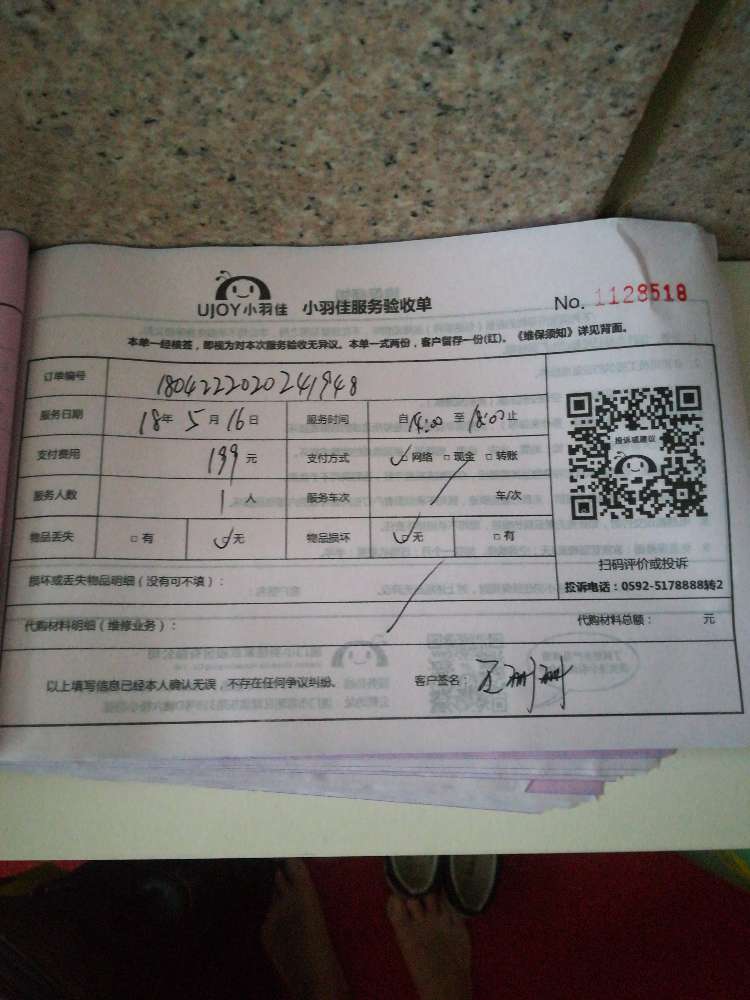 UJOY小羽佳 小羽佳服务验收单 No. 1128518
本单一经核签，即视为对本次服务验收无异议。本单一式两份，客户留存一份(红)。《维保须知》详见背面。
订单编号 1804222020241948
服务日期 18年 5月 16日 服务时间 自14:00至18:00止
支付费用 199元 支付方式 ☑网络 □现金 □转账
服务人数 1人 服务车次 车/次
物品丢失 □有 ☑无 物品损坏 ☑无 □有
投诉或建议
扫码评价或投诉
投诉电话：0592-5178888转2
损坏或丢失物品明细（没有可不填）：
代购材料明细（维修业务）： 代购材料总额： 元
以上填写信息已经本人确认无误，不存在任何争议纠纷。 客户签名：